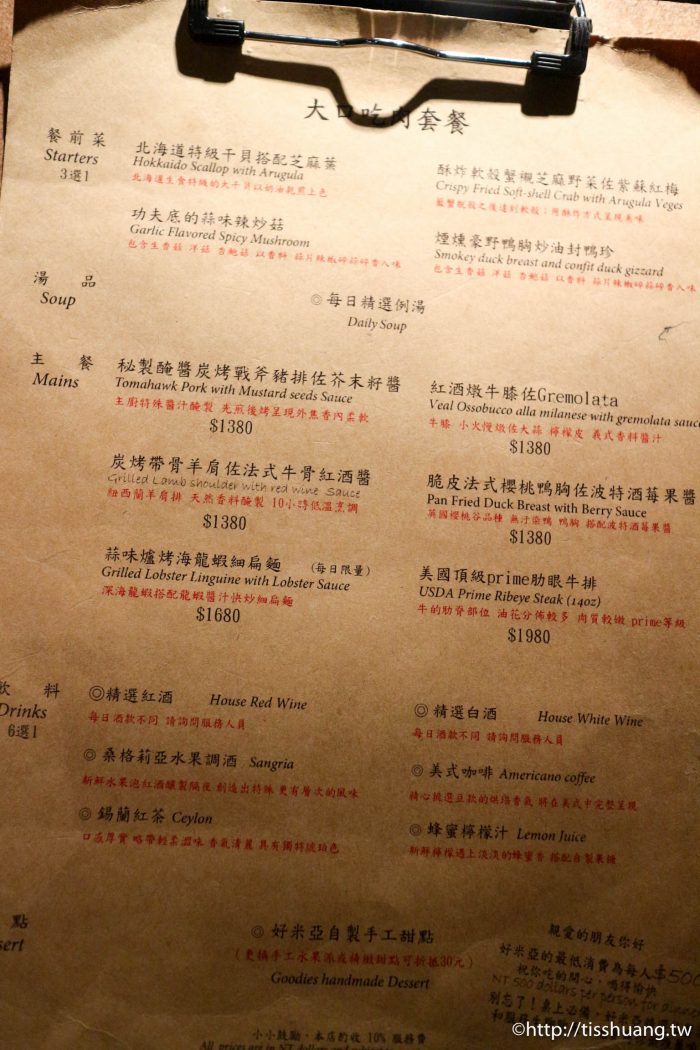 大口吃肉套餐
餐前菜
Starters
3選1
北海道特級干貝搭配芝麻葉
Hokkaido Scallop with Arugula
北海道生食特級的大干貝以奶油乾煎上色
酥炸軟殼蟹襯芝麻野菜佐紫蘇紅梅
Crispy Fried Soft-shell Crab with Arugula Veges
藍蟹脫殼之後達到軟殼；用酥炸方式呈現美味
功夫底的蒜味辣炒菇
Garlic Flavored Spicy Mushroom
包含生香菇 洋菇 杏鮑菇 以香料 蒜片辣椒碎蒜碎香入味
煙燻豪野鴨胸炒油封鴨珍
Smokey duck breast and confit duck gizzard
包含生香菇 洋菇 杏鮑菇 以香料 蒜片辣椒碎蒜碎香入味
湯品
Soup
◎每日精選例湯
Daily Soup
主餐
Mains
秘製醃醬炭烤戰斧豬排佐芥末籽醬
Tomahawk Pork with Mustard seeds Sauce
主廚特殊醬汁醃製 先煎後烤呈現外焦香內柔軟
$1380
紅酒燉牛膝佐Gremolata
Veal Ossobucco alla milanese with gremolata sauce
牛膝 小火慢燉佐大蒜 檸檬皮 義式香料醬汁
$1380
炭烤帶骨羊肩佐法式牛骨紅酒醬
Grilled Lamb shoulder with red wine Sauce
紐西蘭羊肩排 天然香料醃製 10小時低溫烹調
$1380
脆皮法式櫻桃鴨胸佐波特酒莓果醬
Pan Fried Duck Breast with Berry Sauce
英國櫻桃谷品種 無汙染鴨 鴨胸 搭配波特酒莓果醬
$1380
蒜味爐烤海龍蝦細扁麵 (每日限量)
Grilled Lobster Linguine with Lobster Sauce
深海龍蝦搭配龍蝦醬汁快炒細扁麵
$1680
美國頂級prime肋眼牛排
USDA Prime Ribeye Steak (14oz)
牛的肋脊部位 油花分佈較多 肉質較嫩 prime等級
$1980
飲料
Drinks
6選1
◎精選紅酒 House Red Wine
每日酒款不同 請詢問服務人員
◎精選白酒 House White Wine
每日酒款不同 請詢問服務人員
◎桑格莉亞水果調酒 Sangria
新鮮水果泡紅酒釀製隔夜 創造出特殊 更有層次的風味
◎美式咖啡 Americano coffee
精心挑選豆款的烘焙香氣 將在美式中完整呈現
◎錫蘭紅茶 Ceylon
口感厚實 略帶輕柔澀味 香氣清麗 具有獨特琥珀色
◎蜂蜜檸檬汁 Lemon Juice
新鮮檸檬遇上淡淡的蜂蜜香 搭配自製果糖
點
sert
◎好米亞自製手工甜點
(更換手工水果派或精緻甜點可折抵30元)
Goodies handmade Dessert
親愛的朋友你好
好米亞的最低消費為每人$500
祝你吃的開心，喝得愉快
NT 500 dollars per person for
別忘了！桌上必備，好米亞
小小鼓勵，本店酌收 10% 服務費
All prices are in NT dollars
©http://tisshuang.tw